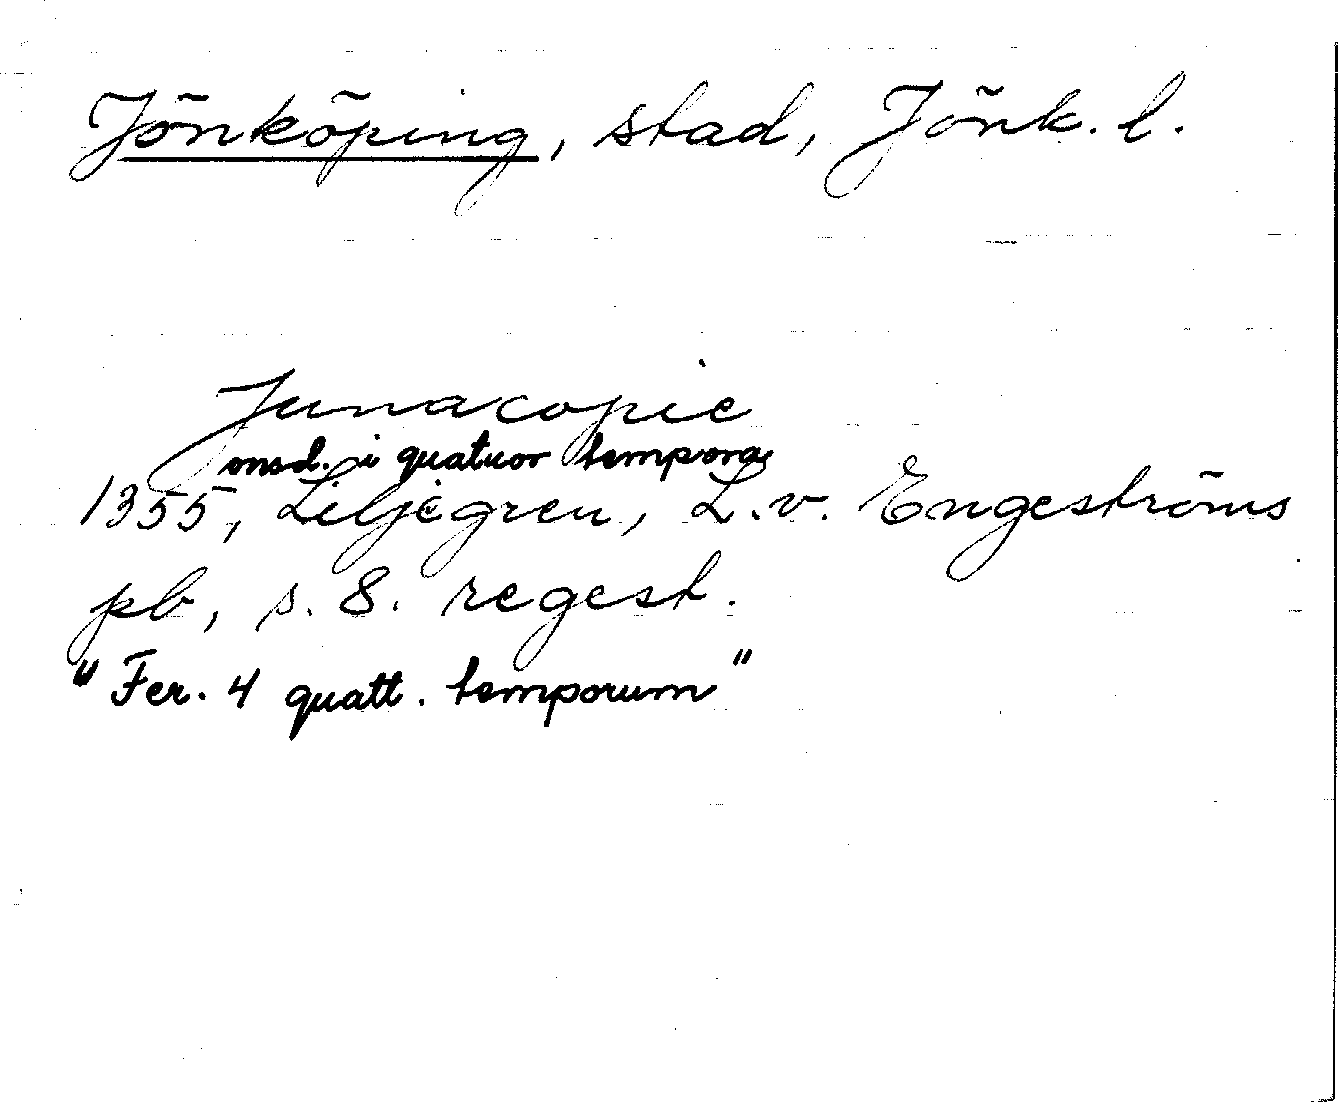 Jönköping, stad, Jönk. l.
Junacopie
onsd. i quatuor tempora
1355, Liljegren, L. v. Engeströms
pb, s. 8. regest.
"Fer. 4 quatt. temporum"